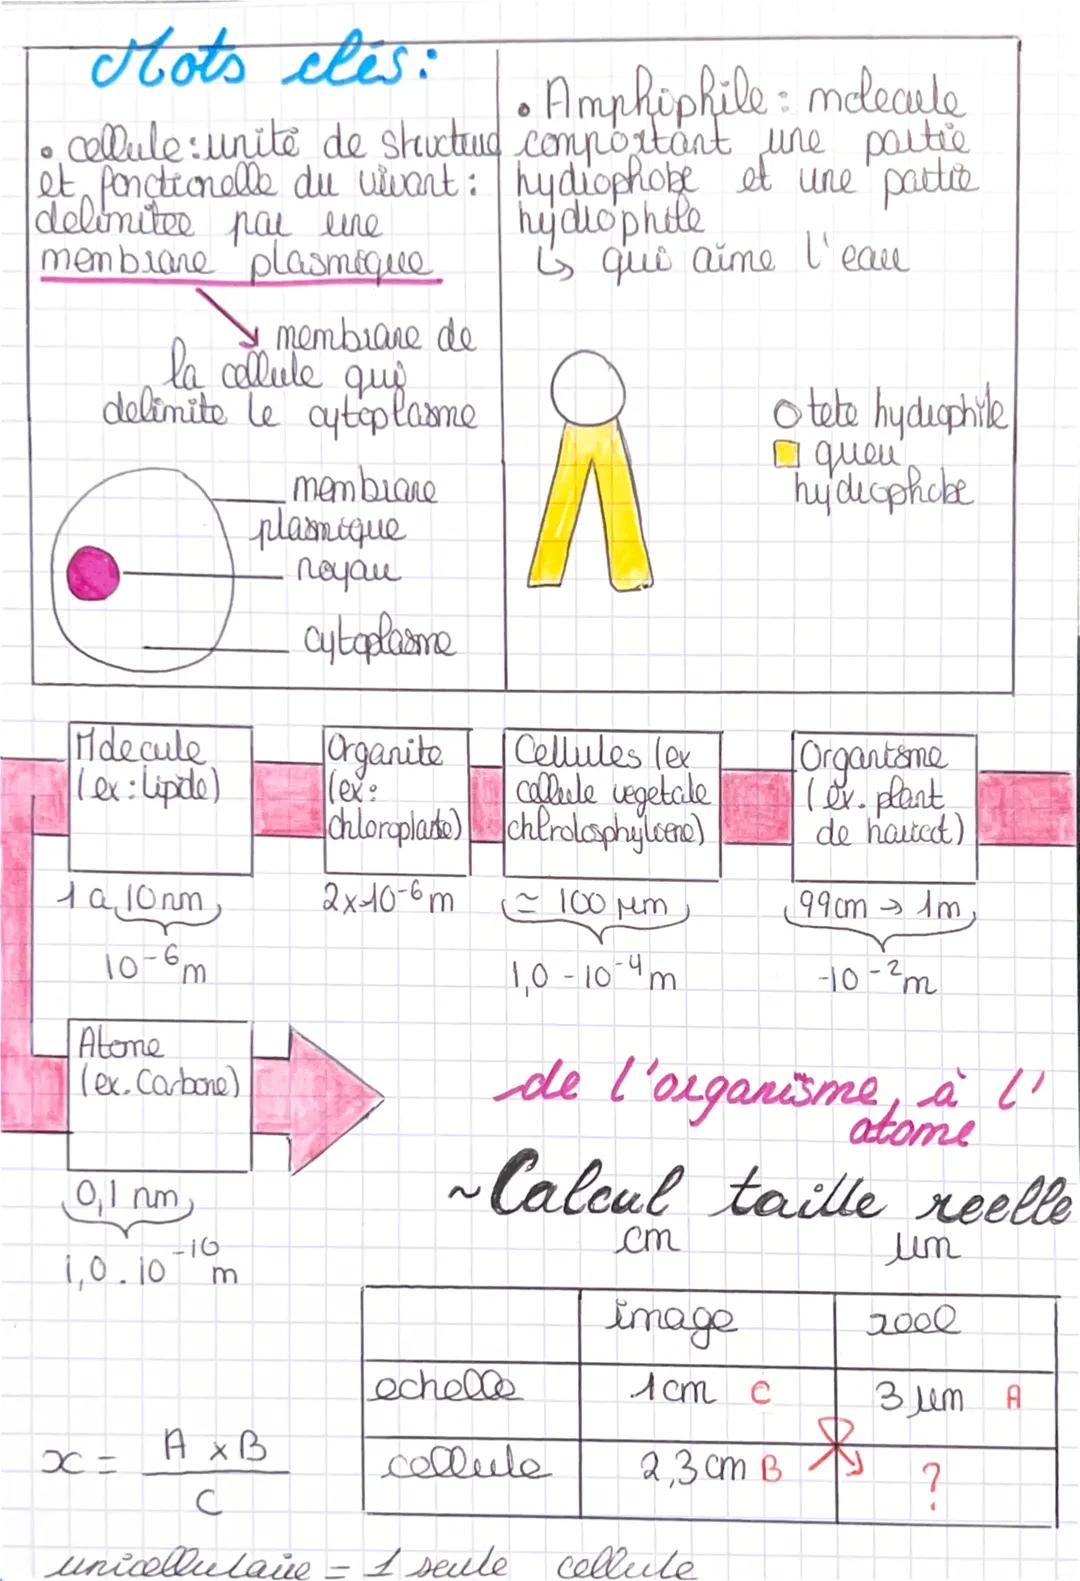 Mots clés:
• cellule: unité de structure
et fonctionelle du vivant:
delimitée par une
membrane plasmique
membrane de
la cellule qui
delimite le cytoplasme
membrane
plasmique
noyau
cytoplasme
• Amphiphile: molecule
comportant une partie
hydrophobe et une partie
hydrophile
↳ qui aime l'eau
tete hydrophile
queu
hydrophobe
Molecule
(ex: lipide)
1 a 10 nm
10-6 m
Organite
(ex:
chloroplaste)
2x10-6 m
Cellules (ex
cellule vegetale
≃ 100 µm
1,0 - 10-4 m
Organisme
(ex. plant
de haricot)
99cm → 1m
-10-2 m
Atome
(ex. Carbone)
0,1 nm
1,0 . 10-10 m
de l'organisme, à l'
atome
~Calcul taille reelle
cm µm
image reel
echelle 1cm C 3 µm A
cellule 2,3 cm B ?
x = A x B
C
unicellulaire = 1 seule cellule